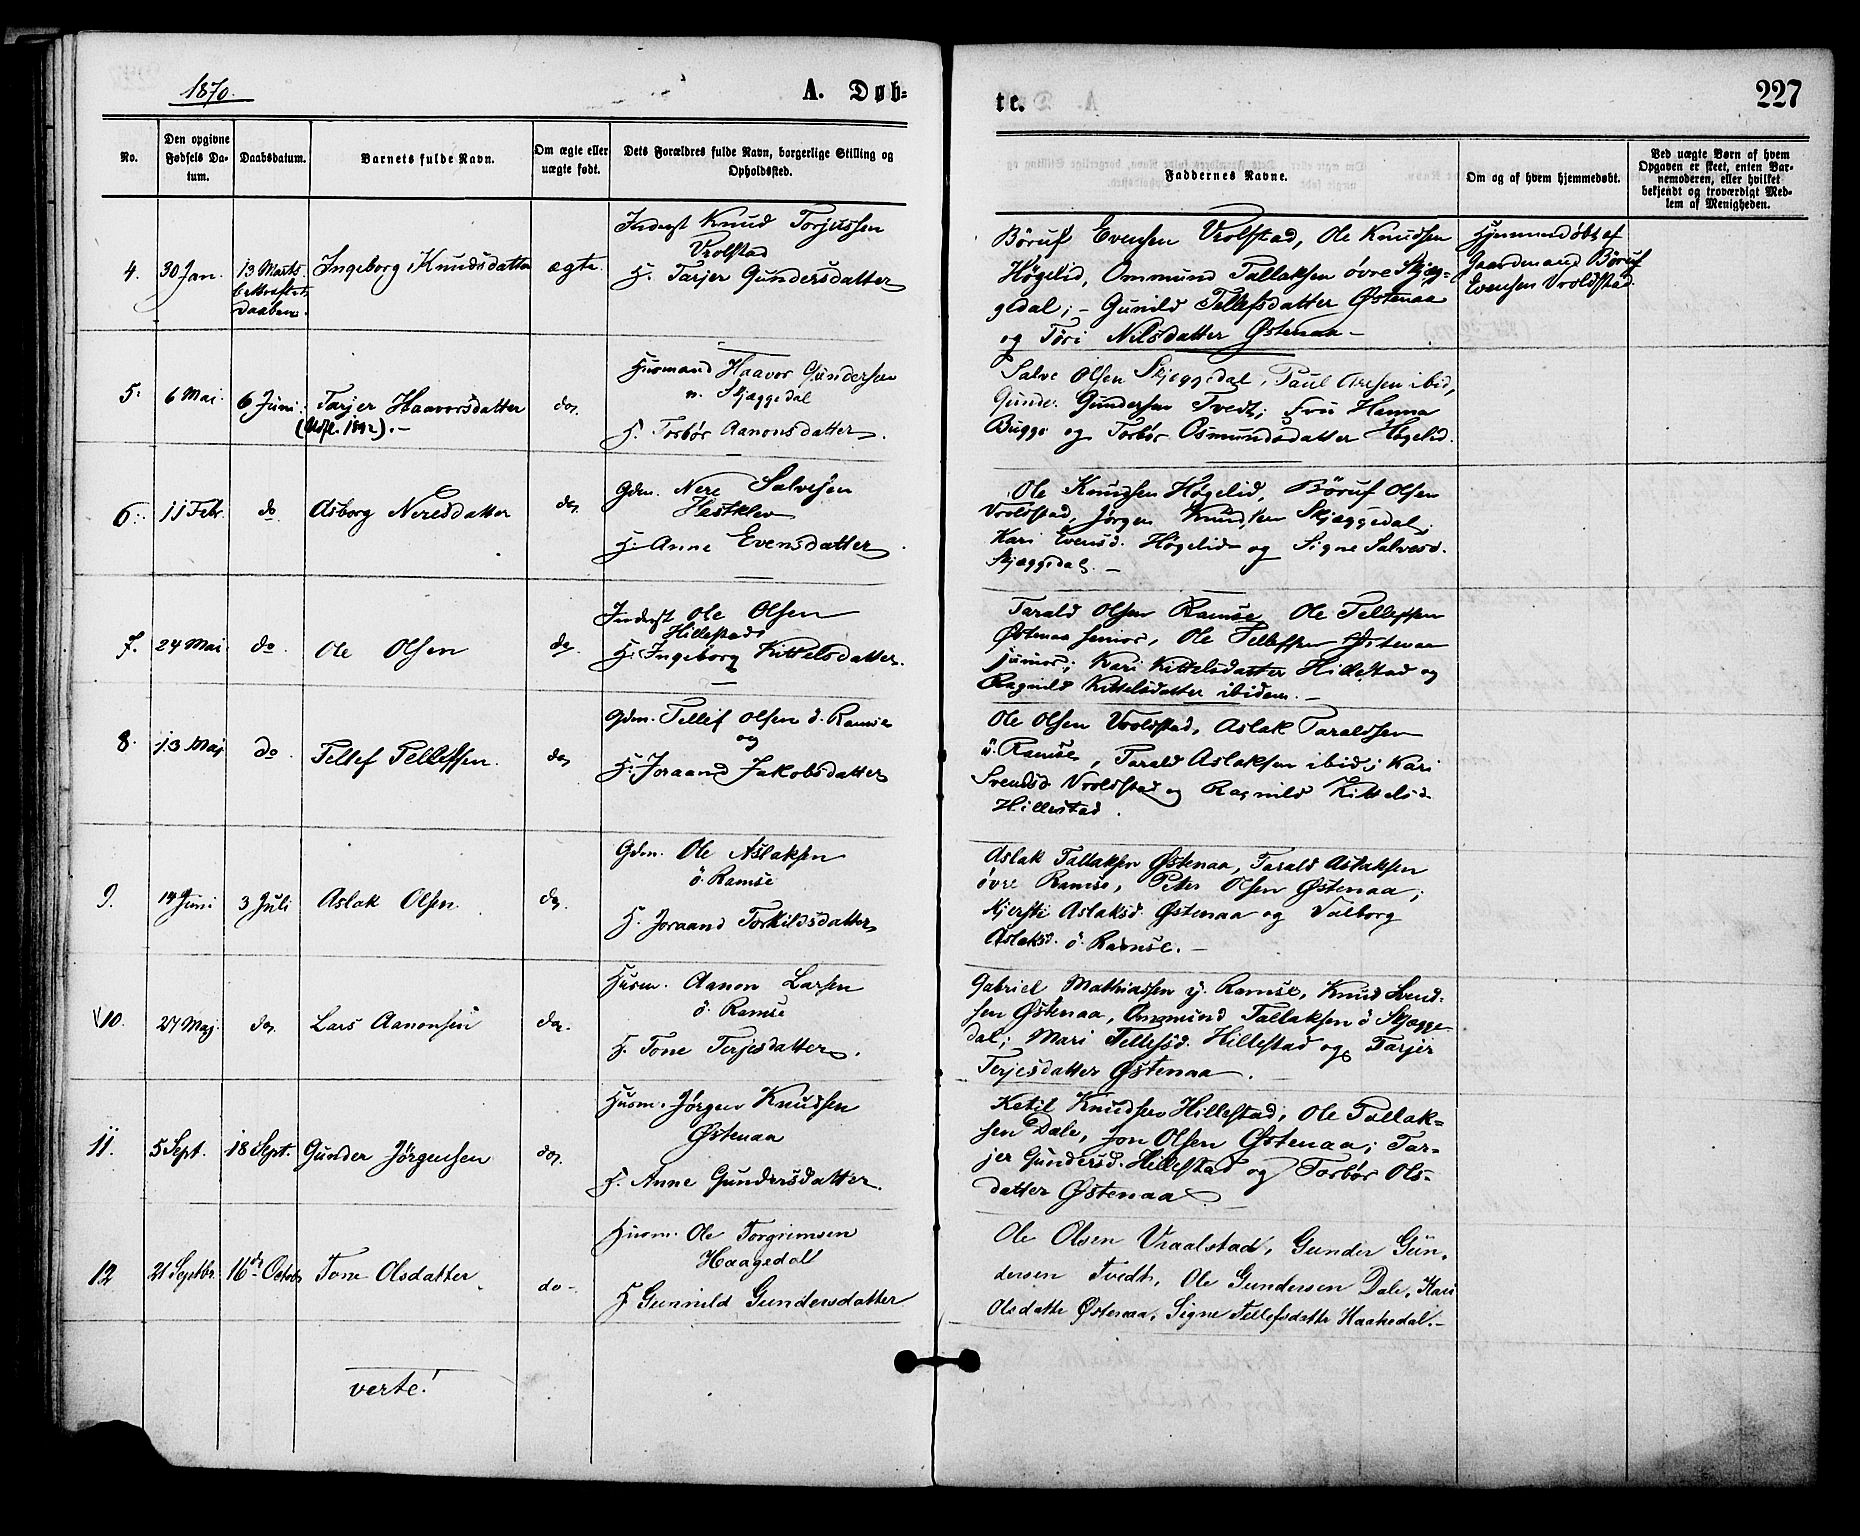 1870.
A. Døb=
te.
227
No.
Den opgivne
Fødsels Da-
tum.
Daabsdatum.
Barnets fulde Navn.
Om ægte eller
uægte født.
Dets Forældres fulde Navn, borgerlige Stilling og
Opholdssted.
Faddernes Navne.
Om og af hvem hjemmedøbt.
Ved uægte Børn af hvem
Opgaven er skeet, enten Bar-
nemoderen, eller hvilket
bekjendt og troværdigt Med-
lem af Menigheden.
4.
30 Jan.
13 Marts
bekræftet
Daaben.
Ingeborg Knudsdatter
ægte.
Inderst Knud Torjussen
Vrolstad
H. Tarjer Gundersdatter
Böruf Evensen Vrolstad, Ole Knudsen
Høgelid, Ommund Tallaksen øvre Skjæg-
gedal; - Gunild Tellefsdatter Østenaa
og Töri Nilsdatter Østenaa -
Hjemmedøbt af
Gaardmand Böruf
Evensen Vroldstad.
5.
6 Mai.
6 Juni.
Tarjer Haavorsdatter
do.
Husmand Haavor Gundersen
n. Skjæggedal
H. Torbör Aanonsdatter.
Salve Olsen Skjeggedal, Paul Aresen ibid,
Gunder Gundersen Tvedt; Fru Hanna
Bugge og Torbör Osmundsdatter Høgelid.
6.
11 Febr.
do
Asborg Neresdatter
do.
Gdm. Nere Salvesen
Hestklev
H. Anne Evensdatter
Ole Knudsen Høgelid, Böruf Olsen
Vroldstad, Jørgen Knudsen Skjæggedal;
Kari Evensd. Høgelid og Signe Salvesd.
Skjæggedal. -
7.
24 Mai
do.
Ole Olsen
do
Inderst Ole Olsen
Hillestad
H. Ingeborg Kittelsdatter.
Tarald Olsen Ramse, Ole Tellefsen
Østenaa senior, Ole Tellefsen Østenaa
junior; Kari Kittelsdatter Hillestad og
Ragnild Kittelsdatter ibidem. -
8.
13 Maj
do.
Tellef Tellefsen.
do.
Gdm. Tellef Olsen ö. Ramse
og
H. Joraand Jakobsdatter
Ole Olsen Vroldstad, Aslak Taraldsen
ö. Ramse, Tarald Aslaksen ibid; Kari
Svensd. Vroldstad og Ragnild Kittelsd.
Hillestad.
9.
14 Juni
3 Juli
Aslak Olsen.
do.
Gdm. Ole Aslaksen
ö. Ramse
H. Joraand Torkildsdatter
Aslak Tallaksen Østenaa, Tarald Aslaksen
øvre Ramse, Peter Olsen Østenaa;
Kjersti Aslaksd. Østenaa og Valborg
Aslaksd. ö. Ramse. -
10.
27 Maj.
do.
Lars Aanonsen
do.
Husm. Aanon Larsen
ö. Ramse
H. Tone Terjesdatter.
Gabriel Mathiassen y. Ramse, Knud Svend-
sen Østenaa, Ommund Tallaksen ö Skjægge
dal; Mari Tellefsd. Hillestad og Tarjer
Terjesdatter Østenaa.
11.
5 Sept.
18 Sept.
Gunder Jörgensen
do.
Husm. Jörgen Knudsen
Østenaa
H. Anne Gundersdatter.
Ketil Knudsen Hillestad, Ole Tallak-
sen Dale, Jon Olsen Østenaa; Tar-
jer Gundersd. Hillestad og Torbör Ols-
datter Østenaa
12
21 Septbr.
16de Octob
Tone Olsdatter
do -
Husm. Ole Torgrimsen
Haagedal
H Gunnild Gundersdatter
Ole Olsen Vraalstad, Gunder Gun-
dersen Tvedt, Ole Gundersen Dale, Kari
Olsdatter Østenaa, Signe Tellefsdatter Haakedal. -
verte!